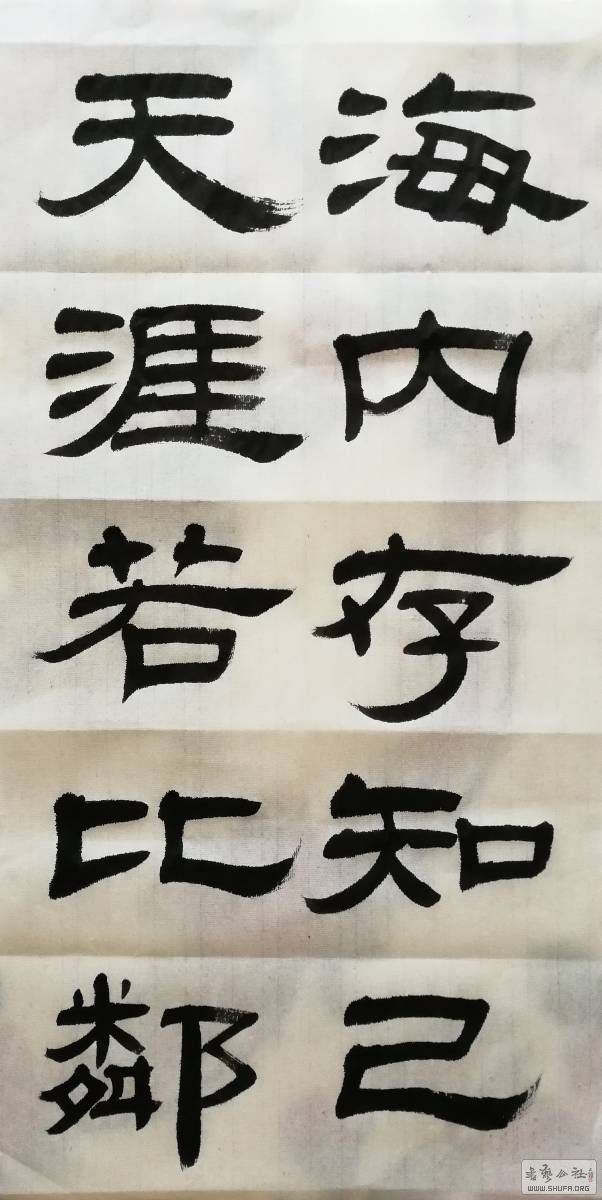 海内存知己
天涯若比鄰
书艺公社
WWW.SHUFA.ORG